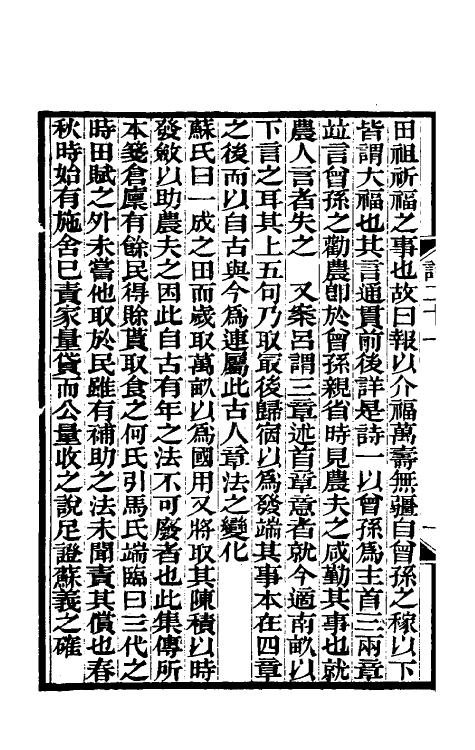 田祖祈福之事也故曰報以介福萬壽無疆自曾孫之稼以下
皆謂大福也其言通貫前後詳是詩一以曾孫爲主首三兩章
竝言曾孫之勸農卽於曾孫親省時見農夫之咸勤其事也就
農人言者失之　又案呂謂三章述首章意者就今適南畝以
下言之耳其上五句乃取冣後歸宿以爲發端其事本在四章
之後而以自古與今爲連屬此古人章法之變化
蘇氏曰一成之田而歲取萬畝以爲國用又將取其陳積以時
發斂以助農夫之困此自古有年之法不可廢者也此集傳所
本箋倉廩有餘民得賒貰取食之何氏引馬氏端臨曰三代之
時田賦之外未嘗他取於民雖有補助之法未聞責其償也春
秋時始有施舍已責家量貸而公量收之說足證蘇義之確
詩二十一